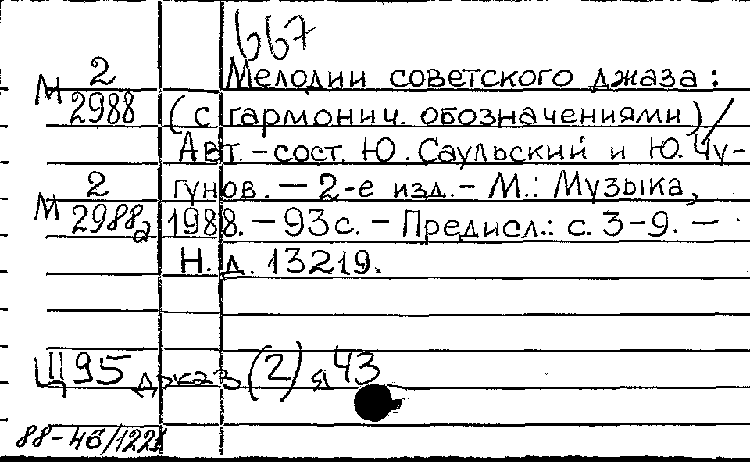 667
М 2/2988
Мелодии советского джаза:
(с гармонич. обозначениями)/
Авт.-сост. Ю. Саульский и Ю. Чу-
М 2/2988а
гунов. — 2-е изд. - М.: Музыка,
1988. — 93с. — Предисл.: с. 3-9. —
Н. д. 13219.
Щ95 джаз (2) я 43